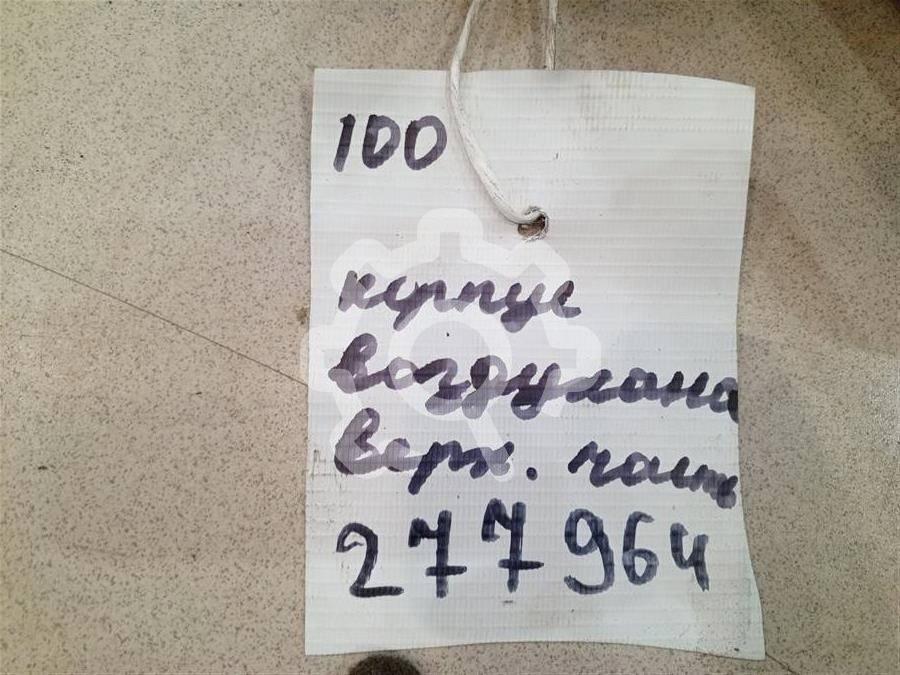 100
корпус
воздухана
верх. часть
277964